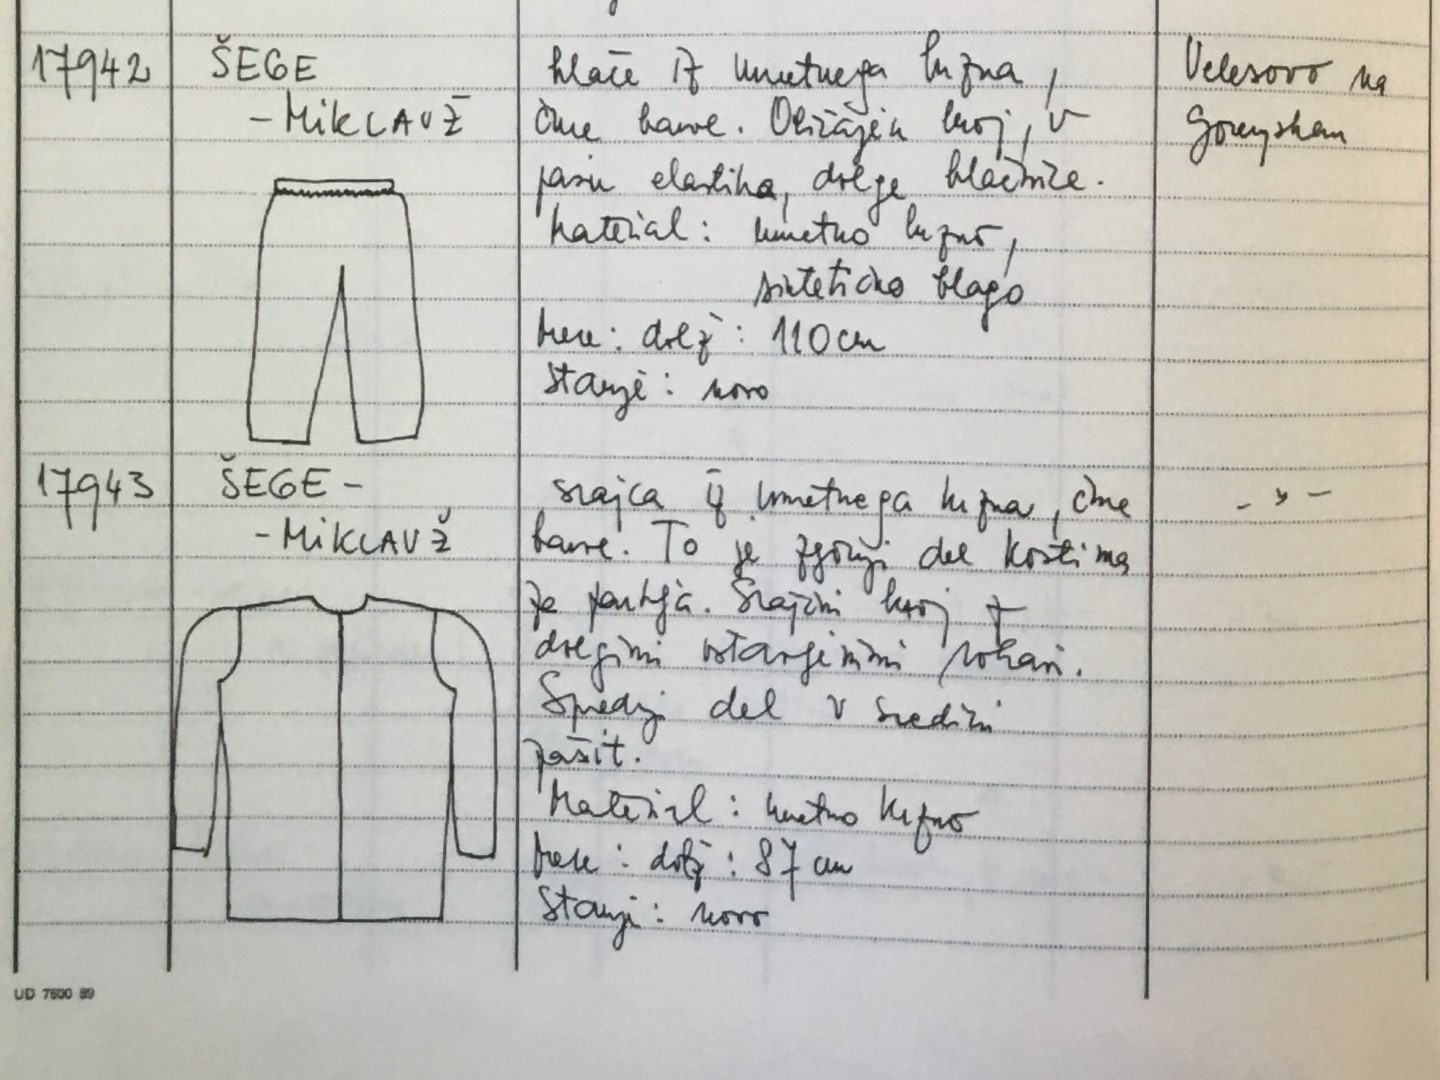 17942
ŠEGE
- MIKLAVŽ
hlače iz umetnega krzna,
črne barve. Običajen kroj, v
pasu elastika, dolge hlačnice.
Material: umetno krzno,
sintetično blago
Mere: dolž: 110 cm
Stanje: novo
Velesovo na
Gorenjskem
17943
ŠEGE -
- MIKLAVŽ
srajca iz umetnega krzna, črne
barve. To je zgornji del kostima
za parklja. Srajčni kroj z
dolgimi vstavljenimi rokavi.
Sprednji del v sredini
zašit.
Material: umetno krzno
Mere: dolž: 87 cm
Stanje: novo
- » -
UD 7600 89